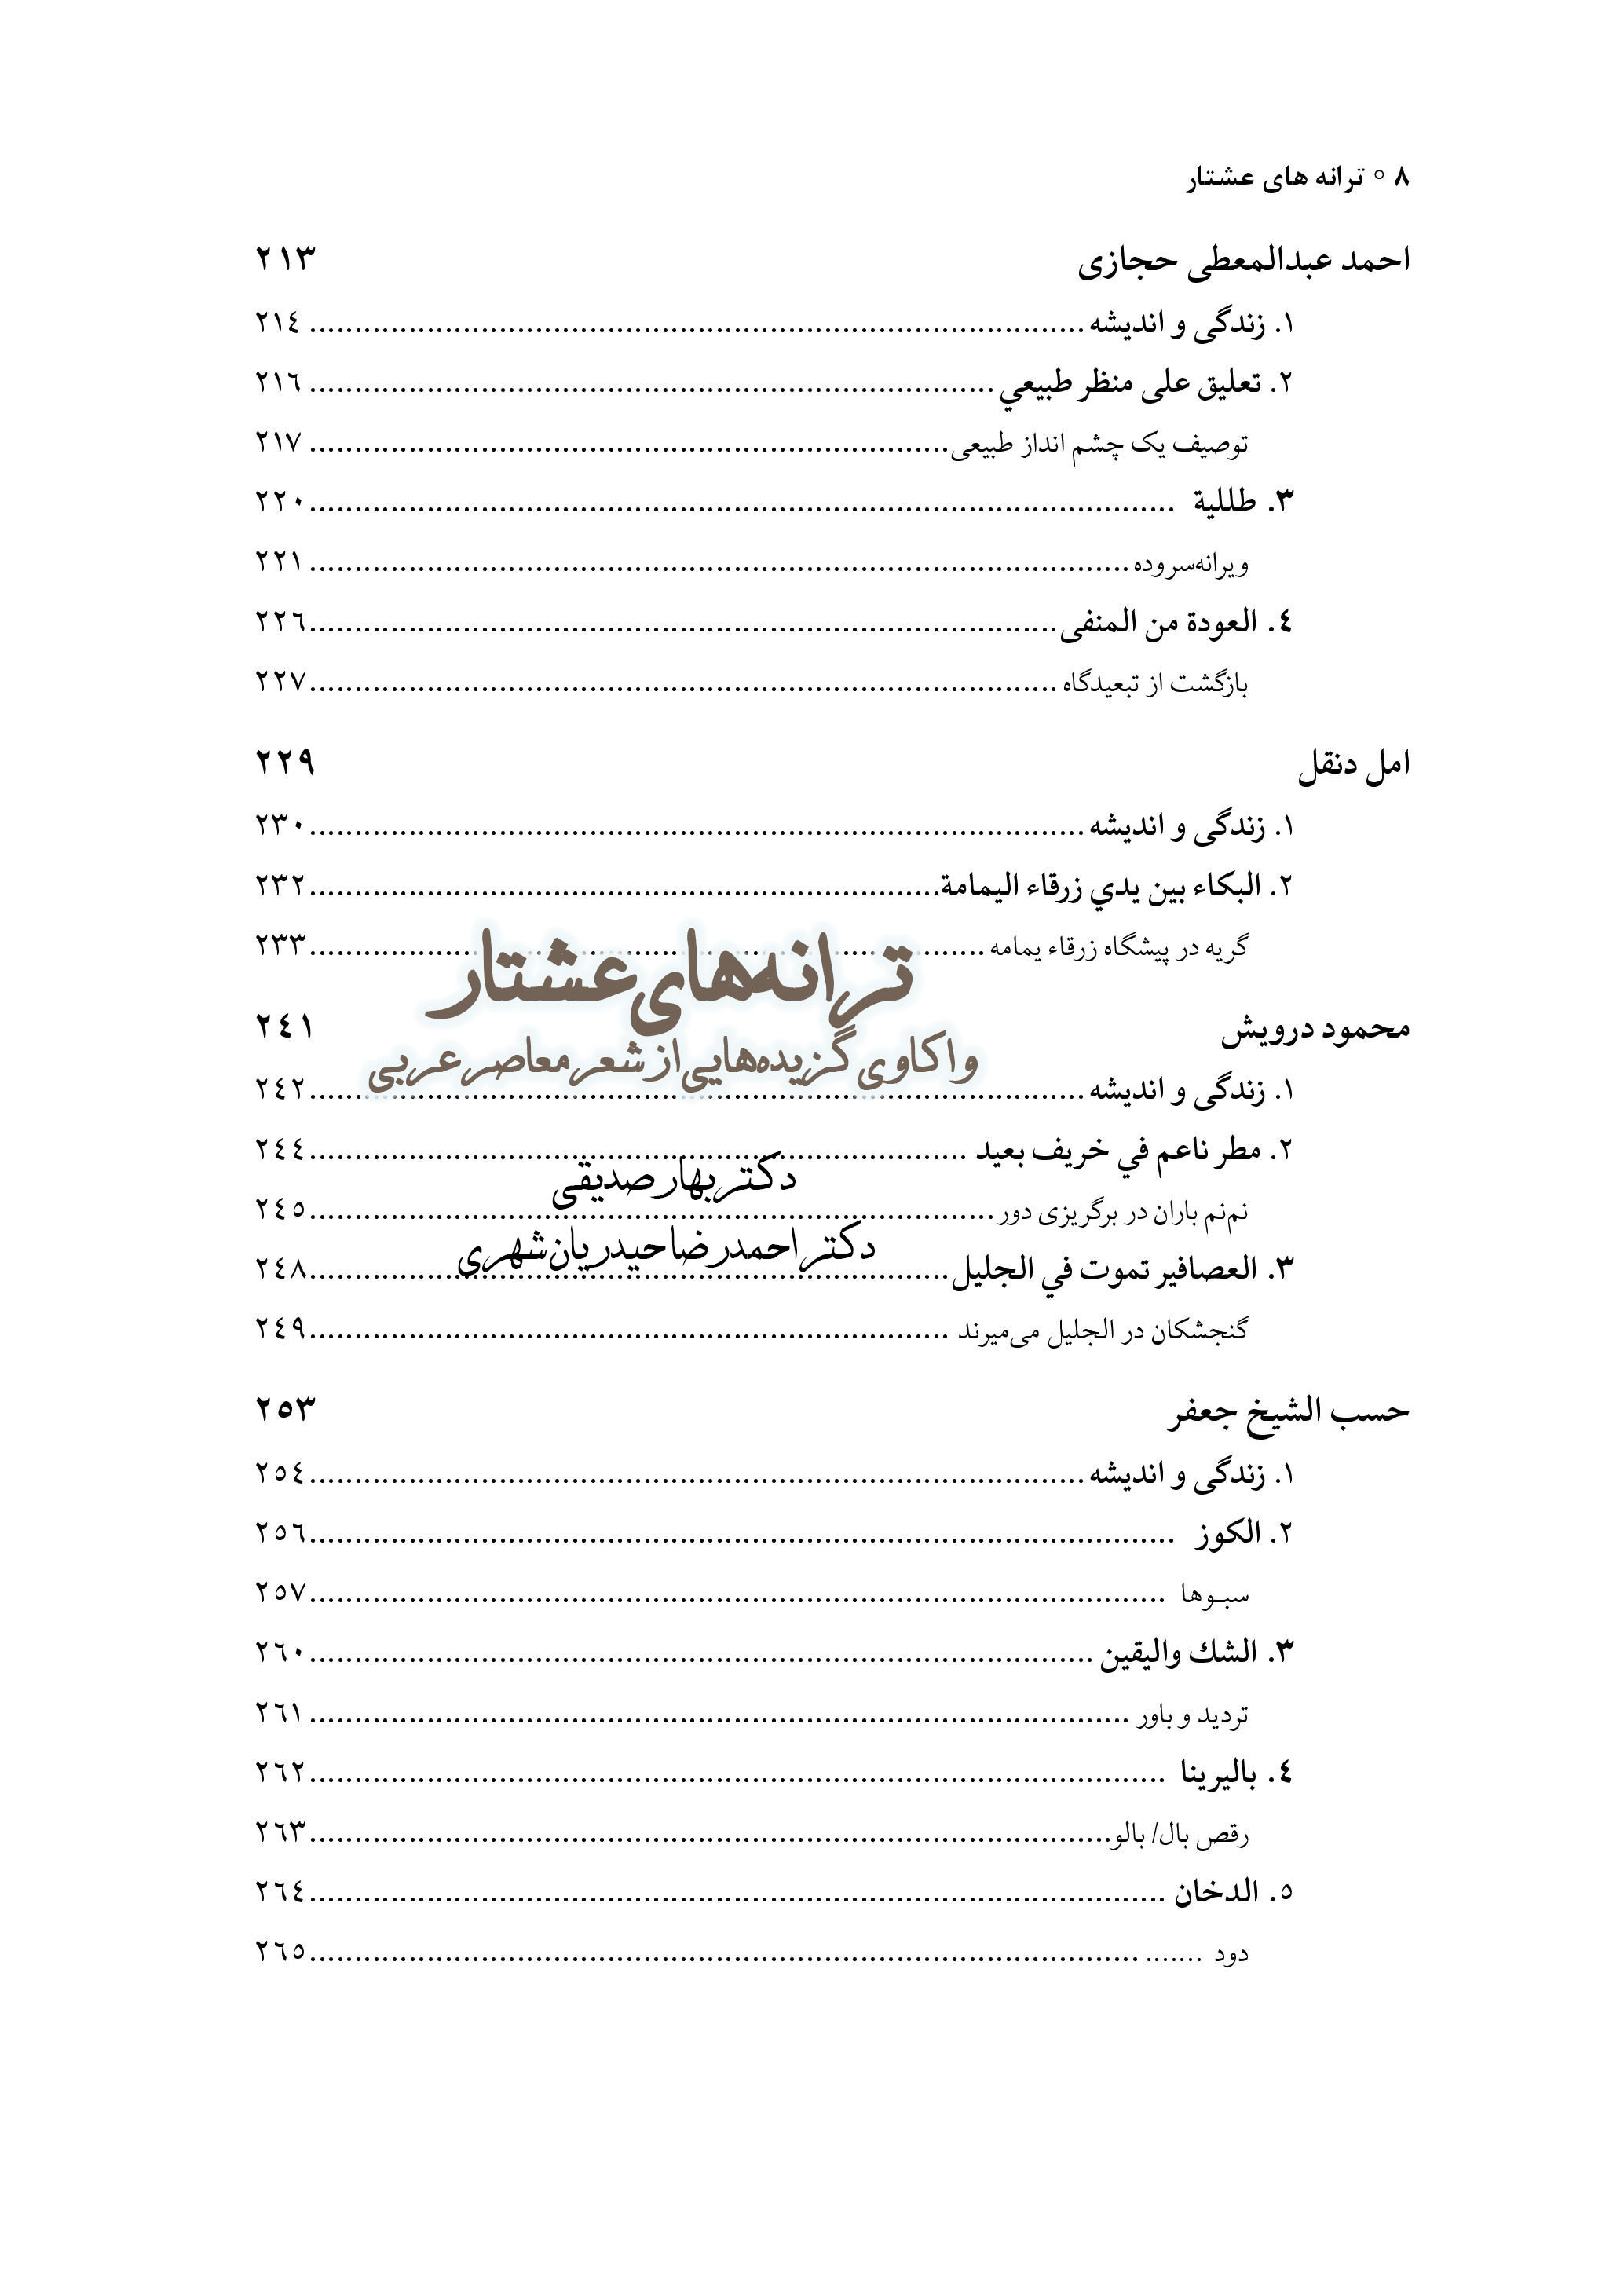 ٨ ○ ترانه های عشتار
احمد عبدالمعطی حجازی ٢١٣
١. زندگی و اندیشه ................ ٢١٤
٢. تعليق على منظر طبيعي ................ ٢١٦
توصیف یک چشم انداز طبیعی ................ ٢١٧
٣. طللية ................ ٢٢٠
ویرانه‌سروده ................ ٢٢١
٤. العودة من المنفى ................ ٢٢٦
بازگشت از تبعیدگاه ................ ٢٢٧
امل دنقل ٢٢٩
١. زندگی و اندیشه ................ ٢٣٠
٢. البكاء بين يدي زرقاء اليمامة ................ ٢٣٢
گریه در پیشگاه زرقاء یمامه ................ ٢٣٣
ترانه‌های عشتار
محمود درویش ٢٤١
واکاوی گزیده‌هایی از شعر معاصر عربی
١. زندگی و اندیشه ................ ٢٤٢
٢. مطر ناعم في خريف بعيد ................ ٢٤٤
دکتر بهار صدیقی
نم‌نم باران در برگریزی دور ................ ٢٤٥
دکتر احمدرضا حیدریان‌شهری
٣. العصافير تموت في الجليل ................ ٢٤٨
گنجشکان در الجلیل می‌میرند ................ ٢٤٩
حسب الشیخ جعفر ٢٥٣
١. زندگی و اندیشه ................ ٢٥٤
٢. الكوز ................ ٢٥٦
سبـوها ................ ٢٥٧
٣. الشك واليقين ................ ٢٦٠
تردید و باور ................ ٢٦١
٤. باليرينا ................ ٢٦٢
رقص بال/ بالو ................ ٢٦٣
٥. الدخان ................ ٢٦٤
دود ................ ٢٦٥